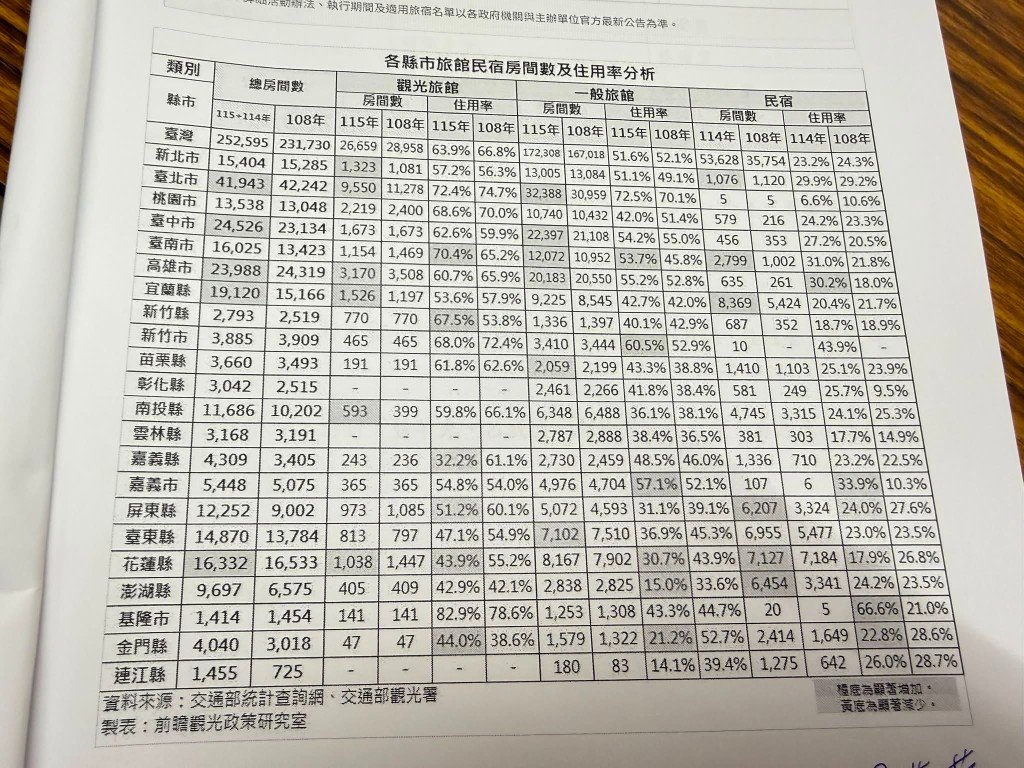 活動辦法、執行期間及適用旅宿名單以各政府機關與主辦單位官方最新公告為準。
各縣市旅館民宿房間數及住用率分析
類別 總房間數 觀光旅館 一般旅館 民宿
縣市 房間數 住用率 房間數 住用率 房間數 住用率
115+114年 108年 115年 108年 115年 108年 115年 108年 115年 108年 114年 108年 114年 108年
臺灣 252,595 231,730 26,659 28,958 63.9% 66.8% 172,308 167,018 51.6% 52.1% 53,628 35,754 23.2% 24.3%
新北市 15,404 15,285 1,323 1,081 57.2% 56.3% 13,005 13,084 51.1% 49.1% 1,076 1,120 29.9% 29.2%
臺北市 41,943 42,242 9,550 11,278 72.4% 74.7% 32,388 30,959 72.5% 70.1% 5 5 6.6% 10.6%
桃園市 13,538 13,048 2,219 2,400 68.6% 70.0% 10,740 10,432 42.0% 51.4% 579 216 24.2% 23.3%
臺中市 24,526 23,134 1,673 1,673 62.6% 59.9% 22,397 21,108 54.2% 55.0% 456 353 27.2% 20.5%
臺南市 16,025 13,423 1,154 1,469 70.4% 65.2% 12,072 10,952 53.7% 45.8% 2,799 1,002 31.0% 21.8%
高雄市 23,988 24,319 3,170 3,508 60.7% 65.9% 20,183 20,550 55.2% 52.8% 635 261 30.2% 18.0%
宜蘭縣 19,120 15,166 1,526 1,197 53.6% 57.9% 9,225 8,545 42.7% 42.0% 8,369 5,424 20.4% 21.7%
新竹縣 2,793 2,519 770 770 67.5% 53.8% 1,336 1,397 40.1% 42.9% 687 352 18.7% 18.9%
新竹市 3,885 3,909 465 465 68.0% 72.4% 3,410 3,444 60.5% 52.9% 10 - 43.9% -
苗栗縣 3,660 3,493 191 191 61.8% 62.6% 2,059 2,199 43.3% 38.8% 1,410 1,103 25.1% 23.9%
彰化縣 3,042 2,515 - - - - 2,461 2,266 41.8% 38.4% 581 249 25.7% 9.5%
南投縣 11,686 10,202 593 399 59.8% 66.1% 6,348 6,488 36.1% 38.1% 4,745 3,315 24.1% 25.3%
雲林縣 3,168 3,191 - - - - 2,787 2,888 38.4% 36.5% 381 303 17.7% 14.9%
嘉義縣 4,309 3,405 243 236 32.2% 61.1% 2,730 2,459 48.5% 46.0% 1,336 710 23.2% 22.5%
嘉義市 5,448 5,075 365 365 54.8% 54.0% 4,976 4,704 57.1% 52.1% 107 6 33.9% 10.3%
屏東縣 12,252 9,002 973 1,085 51.2% 60.1% 5,072 4,593 31.1% 39.1% 6,207 3,324 24.0% 27.6%
臺東縣 14,870 13,784 813 797 47.1% 54.9% 7,102 7,510 36.9% 45.3% 6,955 5,477 23.0% 23.5%
花蓮縣 16,332 16,533 1,038 1,447 43.9% 55.2% 8,167 7,902 30.7% 43.9% 7,127 7,184 17.9% 26.8%
澎湖縣 9,697 6,575 405 409 42.9% 42.1% 2,838 2,825 15.0% 33.6% 6,454 3,341 24.2% 23.5%
基隆市 1,414 1,454 141 141 82.9% 78.6% 1,253 1,308 43.3% 44.7% 20 5 66.6% 21.0%
金門縣 4,040 3,018 47 47 44.0% 38.6% 1,579 1,322 21.2% 52.7% 2,414 1,649 22.8% 28.6%
連江縣 1,455 725 - - - - 180 83 14.1% 39.4% 1,275 642 26.0% 28.7%
資料來源：交通部統計查詢網、交通部觀光署
橙底為顯著增加，
製表：前瞻觀光政策研究室
黃底為顯著減少。